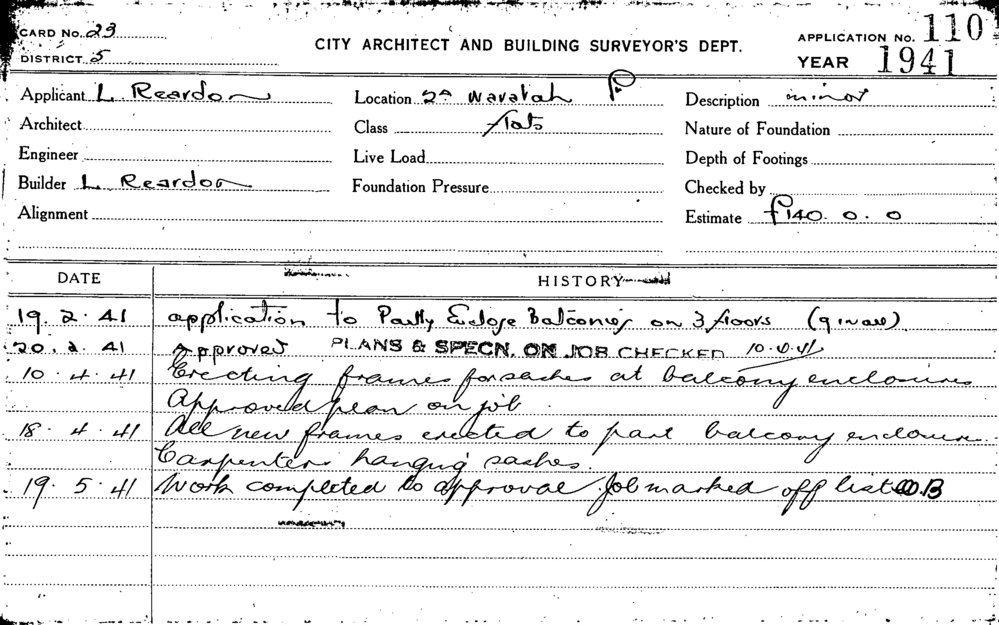 CARD No. 23
DISTRICT 5
CITY ARCHITECT AND BUILDING SURVEYOR'S DEPT.
APPLICATION No. 110
YEAR 1941
Applicant L Reardon Location 2A Waratah Description minor
Architect Class flats Nature of Foundation
Engineer Live Load Depth of Footings
Builder L Reardon Foundation Pressure Checked by
Alignment Estimate £140. 0. 0
DATE HISTORY
19. 2. 41 application to Partly Enclose Balconies on 3 floors (9 in all)
20. 2. 41 Approved PLANS & SPECN. ON JOB CHECKED 10.4.41
10. 4. 41 Erecting frames for sashes at balcony enclosures
Approved plan on job
18. 4. 41 All new frames erected to part balcony enclosure
Carpenters hanging sashes.
19. 5. 41 Work completed to approval Job marked off list